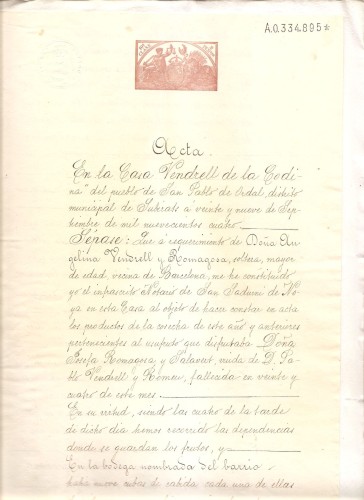 A.0.334.895*
Acta.
En la Casa Vendrell de la Codi-
na" del pueblo de San Pablo de Ordal, distrito
municipal de Subirats á veinte y nueve de Sep-
tiembre de mil novecientos cuatro
Sépase: Que a requerimiento de Doña An-
gelina Vendrell y Romagosa, soltera, mayor
de edad, vecina de Barcelona, me he constituido
yo el infrascrito Notario de San Sadurní de No-
ya en esta Casa al objeto de hacer constar en acta
los productos de la cosecha de este año y anteriores
pertenecientes al usufruto que disfrutaba Doña
Josefa Romagosa y Palavat, viuda de D. Pa-
blo Vendrell y Romeu, fallecida en veinte y
cuatro de este mes.
En su virtud, siendo las cuatro de la tarde
de dicho dia hemos recorrido las dependencias
donde se guardan los frutos, y
En la bodega nombrada del barrio
habia nueve cubas de cabida cada una de ellas